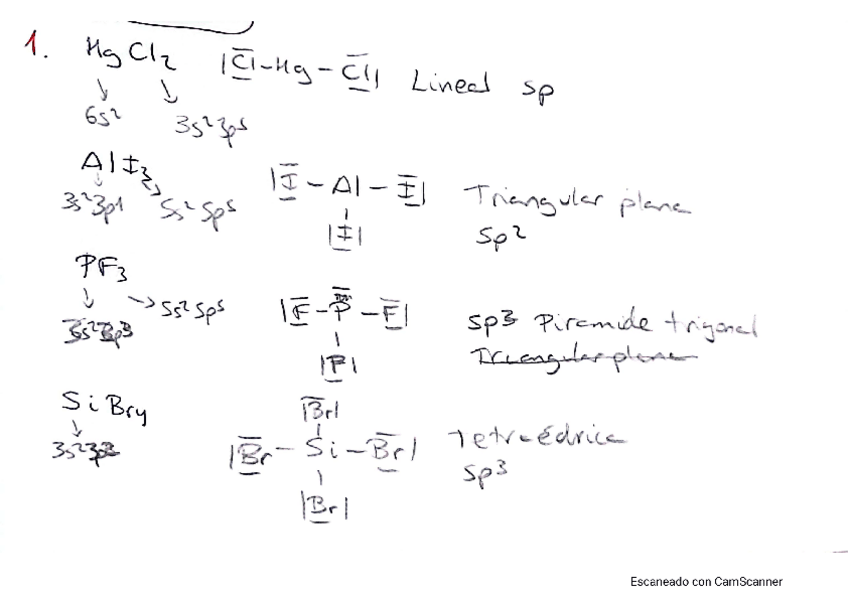 1. HgCl2 |Cl-Hg-Cl| Lineal sp
6s2 3s23p5
AlI3 |I-Al-I| Triangular plana
3s23p1 5s25p5 |I| sp2
PF3
5s25p5 |F-P-F| sp3 Piramide trigonal
3s23p3 |F| Triangular plana
SiBr4 |Br|
3s23p2 |Br-Si-Br| Tetraédrica
sp3
|Br|
Escaneado con CamScanner